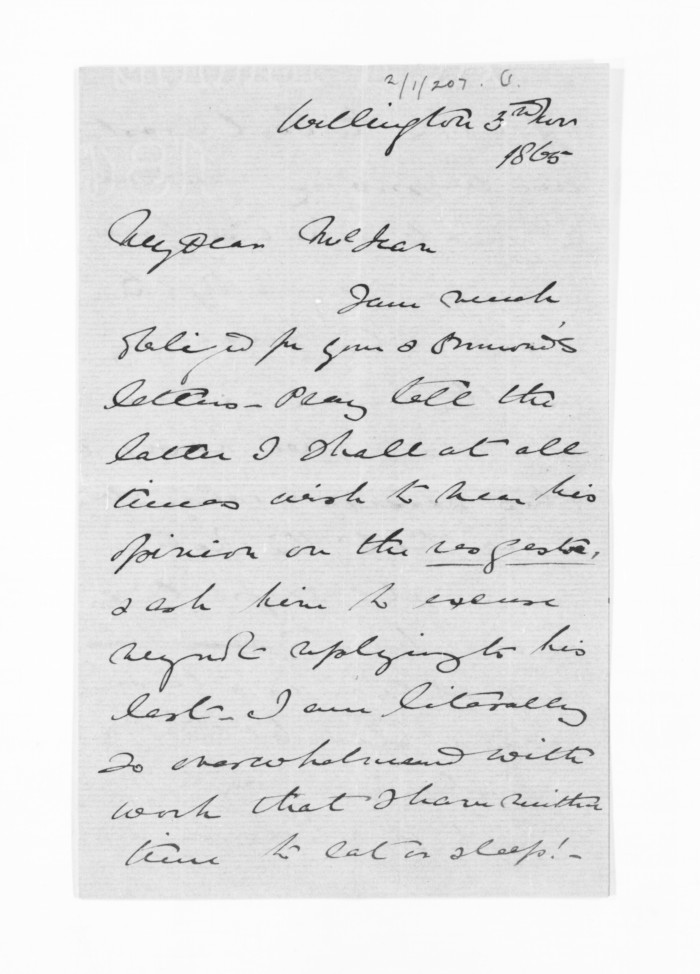 2/1/207. G.
Wellington 3rd Nov
1865
My Dear McLean
I am much
obliged for your & Ormond's
letters - Pray tell the
latter I shall at all
times wish to hear his
opinion on the res gestae,
& ask him to excuse
my not replying to his
last - I am literally
so overwhelmed with
work that I have neither
time to eat or sleep! -